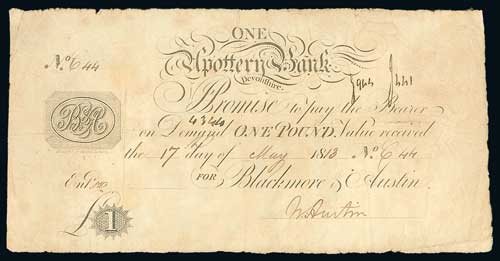 ONE
No. C 44
Upottery Bank
Devonshire.
Promise to pay the Bearer
4344
B&A
on Demand ONE POUND. Value received
the 17 day of May 1813 No. C 44
Entd.
FOR Blackmore & Austin.
£1
W Austin